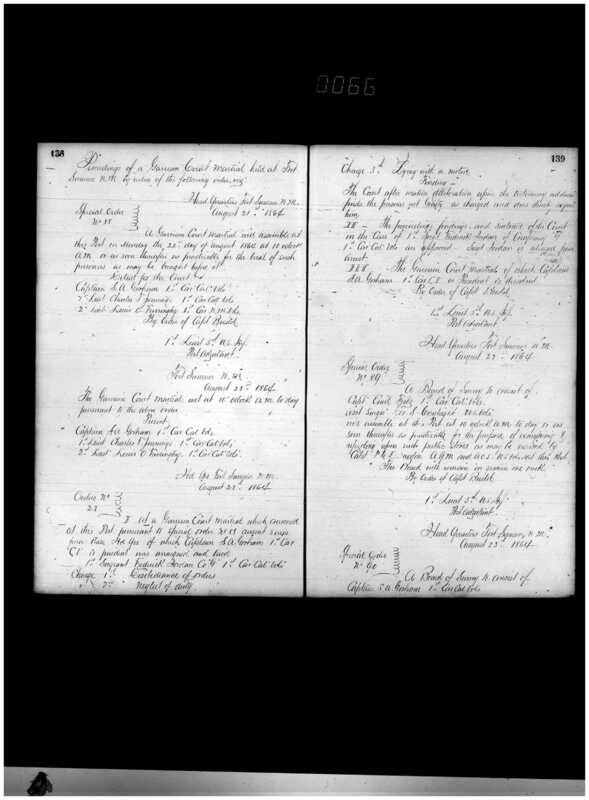 0066
138
Proceedings of a Garrison Court Martial held at Fort
Sumner N.M. by virtue of the following order, viz
Head Quarters Fort Sumner N.M.
August 21st 1864
Special Order
No 88
A Garrison Court Martial will assemble at
this Post on Monday the 22nd day of August 1864 at 10 oclock
A.M. or as soon thereafter as practicable for the trial of such
prisoners as may be brought before it.
Detail for the Court
Captain S.A. Gorham 1st Cav Cal Vols
2nd Lieut Charles Jennings 1st Cav Cal Vols
2nd Lieut 1st Cav N.M. Vols
By Order of Capt Bristol
1st Lieut 5th U.S. Inf.
Post Adjutant
Fort Sumner N.M.
August 22nd 1864
The Garrison Court Martial met at 10 oclock A.M. to day
pursuant to the above order
Present
Captain S.A. Gorham 1st Cav Cal Vols
1st Lieut Charles Jennings 1st Cav Cal Vols
2nd Lieut 1st Cav Cal Vols
Hd Qrs Fort Sumner N.M.
August 22nd 1864
Orders No
23
I at a Garrison Court Martial which convened
at this Post pursuant to Special Order No 88 August
from these Hd Qrs of which Captain S.A. Gorham 1st Cav
CV is president was arraigned and tried
1st Sergeant Frederick Jordan Co 1st Cav Cal Vols
Charge 1st Disobedience of orders
" 2nd Neglect of duty
139
Charge 3d Lying with a motive
Finding
The Court after mature deliberation upon the testimony adduced
finds the prisoner not Guilty as charged and does thereby acquit
him
II The proceedings findings and sentence of the Court
in the Case of 1st Sergt Frederick Jordan of Company
1st Cav Cal Vols are approved. Sergt Jordan is released from
arrest
III The Garrison Court Martial of which Captain
S.A. Gorham 1st Cav CV is President is dissolved
By Order of Capt Bristol
1st Lieut 5th U.S. Inf.
Post Adjutant
Head Quarters Fort Sumner N.M.
August 22nd 1864
Special Order
No 89
A Board of Survey to consist of
Capt 1st Cav Cal Vols
Asst Surgn Geo S. U.S. Vols
will assemble at this Post at 10 oclock A.M. to day or as
soon thereafter as practicable for the purpose of examining &
reporting upon such public Stores as may be invoiced by
Capt A.Q.M. and A.C.S. U.S. Vols at this Post
The Board will remain in session one week
By Order of Capt Bristol
1st Lieut 5th U.S. Inf
Post Adjutant
Head Quarters Fort Sumner N.M.
August 23d 1864
Special Order
No 90
A Board of Survey to consist of
Captain S A Gorham 1st Cav Cal Vols